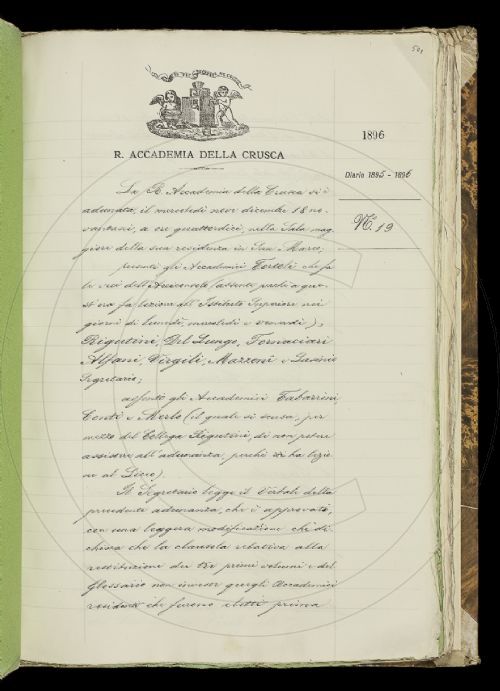 501
1896
R. ACCADEMIA DELLA CRUSCA
Diario 1895 - 1896
N.° 19
La R. Accademia della Crusca si è
adunata, il mercoledì nove dicembre 18no-
vantasei, a ore quattordici, nella Sala mag-
giore della sua residenza in San Marco;
presenti gli Accademici Tortoli che fa
le veci dell'Arciconsolo (assente perchè a que-
st'ora fa lezione all'Istituto Superiore nei
giorni di lunedì, mercoledì e venerdì);
Rigutini, Del Lungo, Fornaciari
Alfani, Virgili, Mazzoni e
Segretario;
assenti gli Accademici Tabarrini,
Conti e Merlo (il quale si scusa, per
mezzo del Collega Rigutini, di non potere
assistere all'adunanza, perchè ha lezio-
ne al Liceo).
Il Segretario legge il Verbale della
precedente adunanza, che è approvato,
con una leggera modificazione che di-
chiara che la clausola relativa alla
restituzione dei tre primi volumi e del
Glossario non investe quegli Accademici
residenti che furono eletti prima